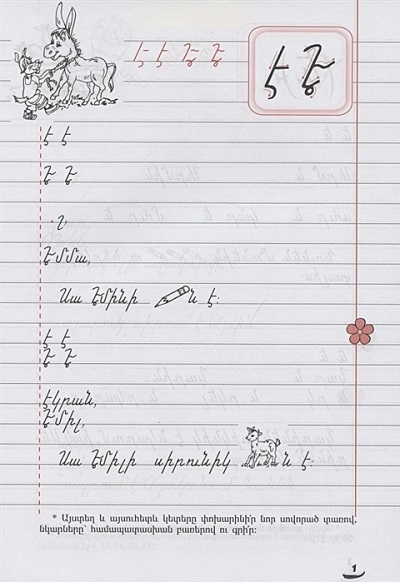 է է Է Է
է Է
է է
Է Է
. Ղ
Էմմա,
Սա Էմինի ն է։
է է
Է Է
էկրան,
Էմիլ,
Սա Էմիլի սիրունիկ ն է։
* Այստեղ և այսուհետև կետերը փոխարինի՛ր նոր սովորած տառով, նկարները՝ համապատասխան բառերով ու գրի՛ր։
1